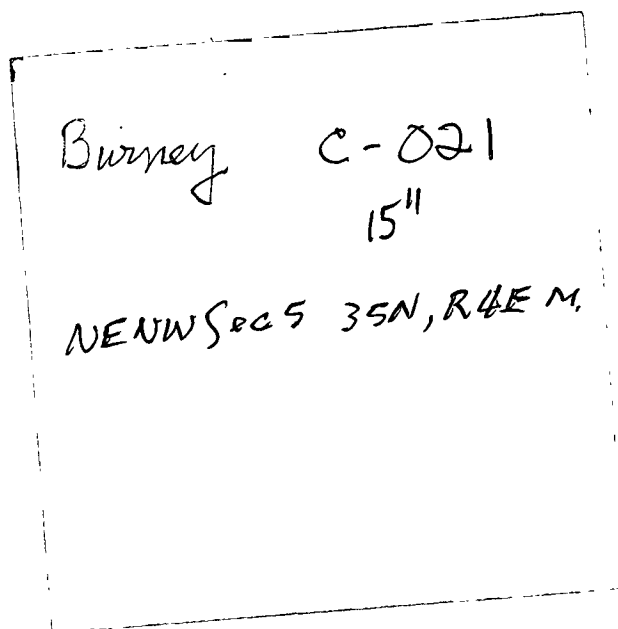 Burney C-021
15"
NENW Sec 5 35N, R4E M.